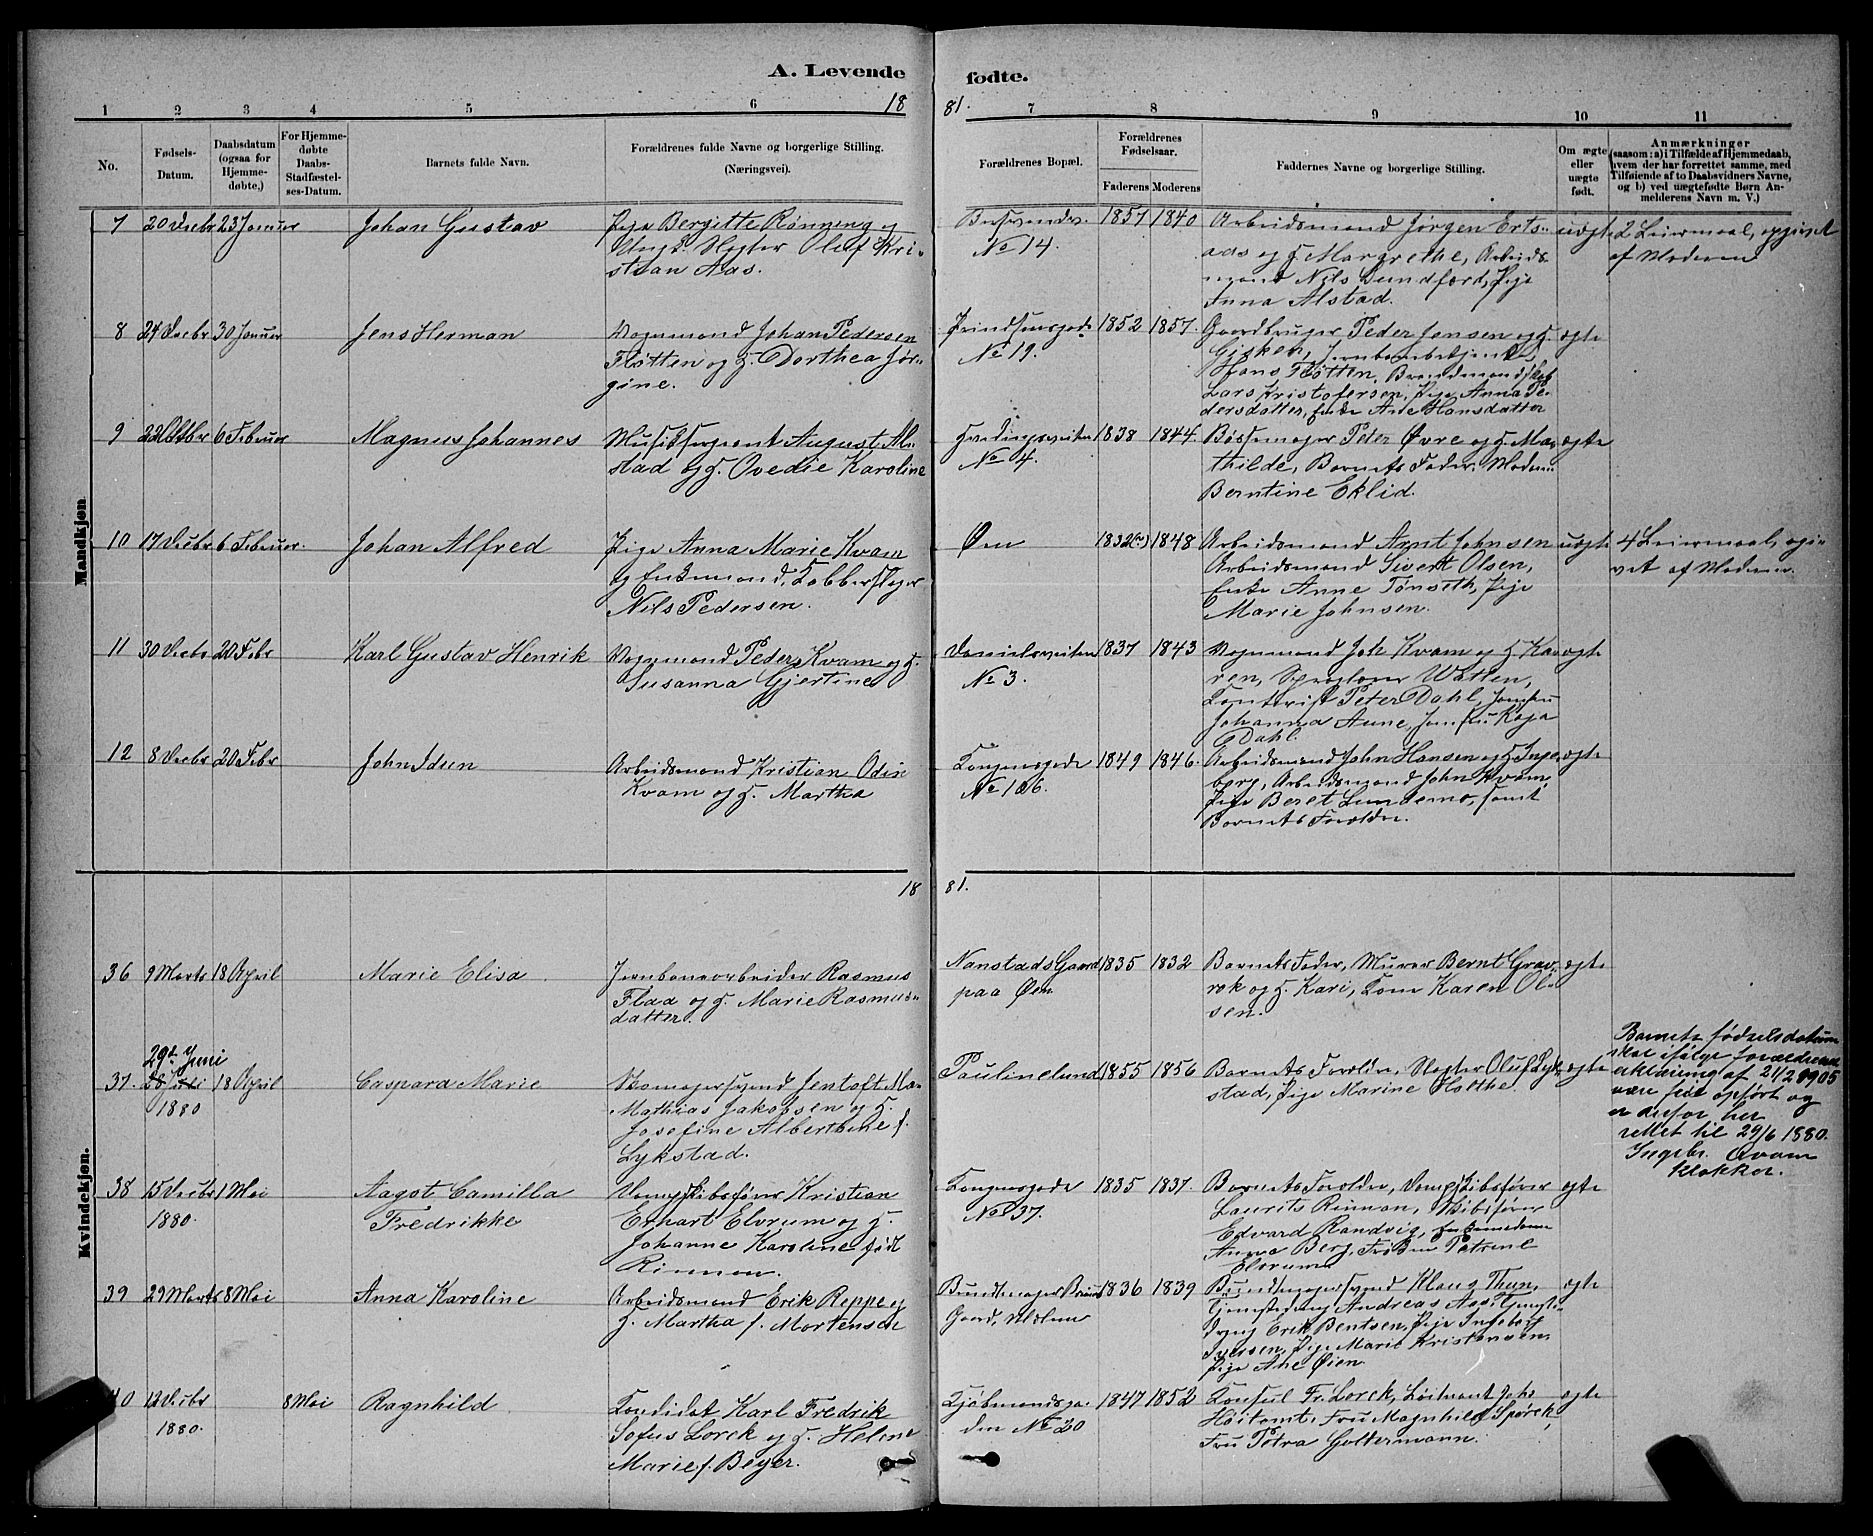 A. Levende fødte.
1881.
1 2 3 4 5 6 7 8 9 10 11
No.
Fødsels-
Datum.
Daabsdatum
(ogsaa for
Hjemme-
døbte,)
For Hjemme-
døbte
Daabs-
Stadfæstel-
ses-Datum.
Barnets fulde Navn.
Forældrenes fulde Navne og borgerlige Stilling.
(Næringsvei).
Forældrenes Bopæl.
Forældrenes
Fødselsaar.
Faderens Moderens
Faddernes Navne og borgerlige Stilling.
Om ægte
eller
uægte
født.
Anmærkninger
(saasom: a) i Tilfælde af Hjemmedaab,
hvem der har forrettet samme, med
Tilføiende af to Daabsvidners Navne,
og b) ved uægtefødte Børn An-
melderens Navn m. V.)
Mandkjøn
7 20 Decbr 23 Januar Johan Gustav
Pige Bergitte Rönning og
Slagter Olef Kri-
stian Aas.
No 14.
1857 1840
Arbeidsmand Jörgen Erts-
aas og H. Margrethe, Arbeids-
mand Nils Sundfærd, Pige
Anna Alstad.
uægte
2 Leiermaal, opgivet
af Moderen
8 24 Decbr 30 Januar Jens Herman
Vognmand Johan Pedersen
Fløtten og H. Dorthea Jör-
gine.
Prindsensgade
No 19.
1852 1857.
Gaardbruger Peder Jensen og H.
Gisken, Jernbanebetjent
Hans Fløtten, Brandmandskab
Lars Kristofersen, Pige Anna Pe-
dersdatter, Enke Ane Hansdatter
ægte
9 22 Oktbr 6 Februar Magnus Johannes
Musiksergeant August Al-
stad og H. Ovedie Karoline
No 4.
1838 1844.
Bøssemager Peter Øvre og H. Ma-
thilde, Barnets Fader, Madam
Berntine Eklid.
ægte
10 17 Decbr 6 Februar. Johan Alfred
Pige Anna Marie Kvam
og Enkemand, Kobberslager
Nils Pedersen.
Øen
1832(?) 1848
Arbeidsmand Arnt Johnsen
Arbeidsmand Sivert Olsen,
Enke Anne Tønseth, Pige
Marie Johnsen.
uægte
4 Leiermaal, opgi-
vet af Moderen.
11 30 Decbr 20 Febr Karl Gustav Henrik
Vognmand Peder Kvam og H.
Susanna Gjertine
Danielsveiten
No 3.
1837 1843
Vognmand Joh Kvam og H. Ka-
ren, Sproglærer Watten,
Kontorist Peter Dahl, Jomfru
Johanna Aune, Jomfru Kaja
Dahl.
ægte
12 8 Decbr 20 Febr John Idun
Arbeidsmand Kristian Odin
Kvam og H. Martha
Kongensgade
No 106.
1849 1846.
Arbeidsmand John Hansen og H. Inge-
borg, Arbeidsmand John Kvam,
Pige Beret Lundemo, samt
Barnets Forældre.
ægte
1881.
Kvindekjøn.
36 9 Marts 18 April Marie Elisa
Jernbanearbeider Rasmus
Flaa og H. Marie Rasmus-
datter.
Nanstads Gaard
paa Øen
1835 1832
Barnets Fader, Murer Bernt Grav-
rok og H. Kari, Kone Karen Ol-
sen.
ægte
29de Juni
37. 28 Juli 18 April Caspara Marie
1880
Skomagersvend Jentoft Ma-
Mathias Jakobsen og H.
Josefine Alberthine f.
Lykstad.
Paulinelund
1855 1856
Barnets Forældre, Slagter Oluf Lyk-
stad, Pige Marine Holthe.
ægte
Barnets fødselsdatum
skal ifølge forældrenes
erklæring af 21/2 1905
være feil opført og
er derfor her
rettet til 29/6 1880.
Ingebr. Qvam
klokker.
38 15 Decbr 1 Mai Aagot Camilla
1880. Fredrikke
Dampskibsfører Kristian
Erhart Elvrum og H.
Johanne Karoline født
Rinnan.
Kongensgade
No 37.
1835 1837.
Barnets Forældre, Dampskibsfører
Laurits Rinnan, Skibsfører
Edvard Randvig, Enkemadam
Anna Berg, Frøken Petrine
Elvrum
ægte
39 29 Marts 8 Mai Anna Karoline
Arbeidsmand Erik Reppe og
H. Martha f. Mortensen
Bundtmager Bruns
Gaard, Ihlen
1836 1839
Bundtmagersvend Klaus Thun,
Tjenestedreng Andreas Aas, Tjeneste-
dreng Erik Bentsen, Pige Ingeborg
Iversen, Pige Marie Kristensen,
Pige Ane Øien.
ægte
40 12 Decbr 8 Mai Ragnhild
1880.
Kandidat Karl Fredrik
Sofus Lorck og H. Helene
Marie f. Beyer.
Kjøbmandsga-
den No 20
1847 1852
Konsul Fr. Lorck, Løitnant Johs
Høitomt, Fru Magnhild Spørck,
Fru Petra Goltermann.
ægte